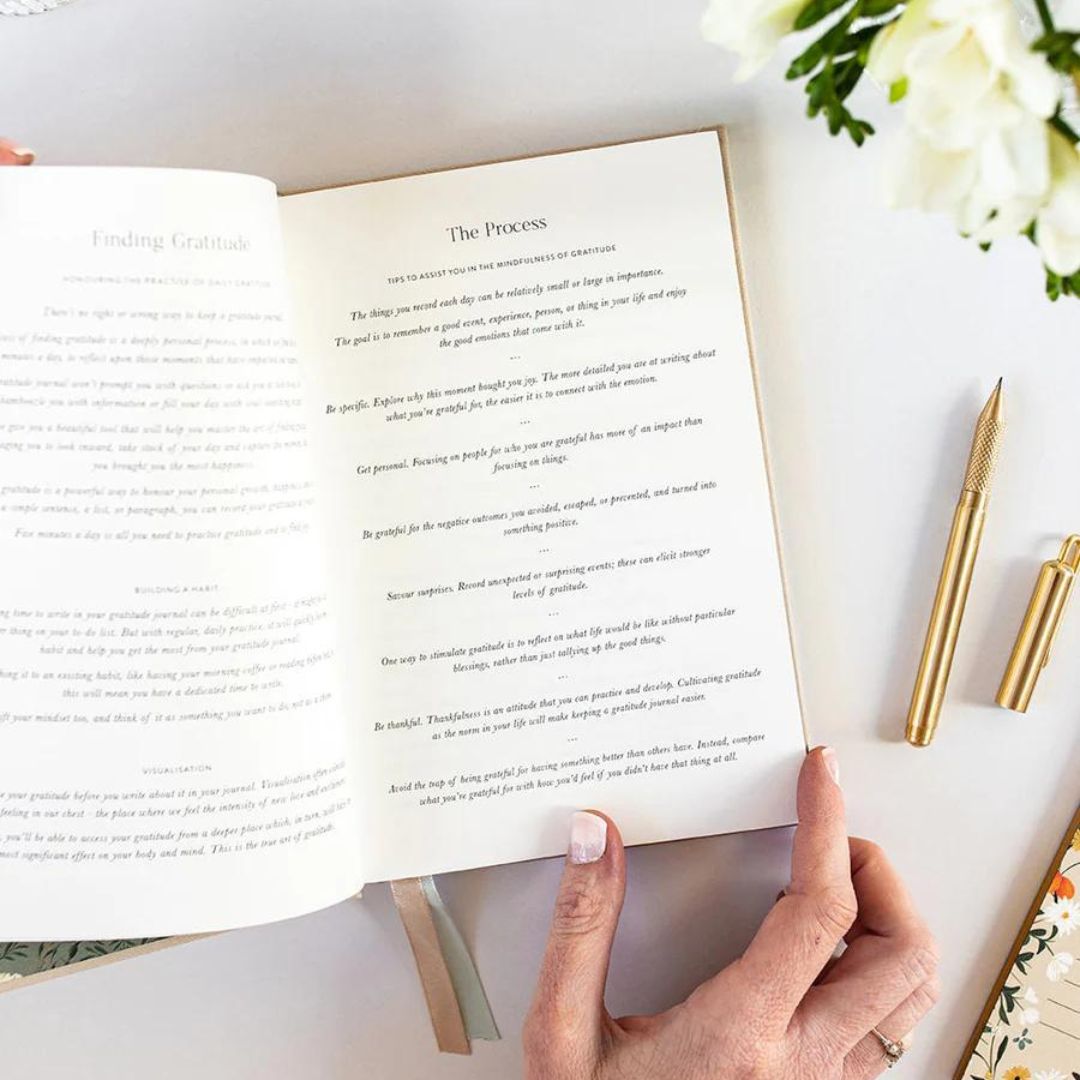 Finding Gratitude
HONOURING THE PRACTICE OF DAILY GRATITUDE
There's no right or wrong way to keep a gratitude
of finding gratitude is a deeply personal process, in which
minutes a day, to reflect upon those moments that have
gratitude journal won't prompt you with questions or ask you
you with information or fill your day with
give you a beautiful tool that will help you master the art of
you to look inward, take stock of your day and capture
you brought you the most happiness.
gratitude is a powerful way to honour your personal growth,
a simple sentence, a list, or paragraph, you can record your
Five minutes a day is all you need to practise gratitude and
BUILDING A HABIT
time to write in your gratitude journal can be difficult at first
thing on your to-do list. But with regular, daily practice, it will quickly
habit and help you get the most from your gratitude journal.
it to an existing habit, like having your morning coffee or reading
this will mean you have a dedicated time to write.
your mindset too, and think of it as something you want to do, not as a
VISUALISATION
your gratitude before you write about it in your journal. Visualisation often
feeling in our chest - the place where we feel the intensity of new love and
you'll be able to access your gratitude from a deeper place which, in turn, will
most significant effect on your body and mind. This is the true art of gratitude.
The Process
TIPS TO ASSIST YOU IN THE MINDFULNESS OF GRATITUDE
The things you record each day can be relatively small or large in importance.
The goal is to remember a good event, experience, person, or thing in your life and enjoy
the good emotions that come with it.
...
Be specific. Explore why this moment bought you joy. The more detailed you are at writing about
what you're grateful for, the easier it is to connect with the emotion.
...
Get personal. Focusing on people for who you are grateful has more of an impact than
focusing on things.
...
Be grateful for the negative outcomes you avoided, escaped, or prevented, and turned into
something positive.
...
Savour surprises. Record unexpected or surprising events; these can elicit stronger
levels of gratitude.
...
One way to stimulate gratitude is to reflect on what life would be like without particular
blessings, rather than just tallying up the good things.
...
Be thankful. Thankfulness is an attitude that you can practice and develop. Cultivating gratitude
as the norm in your life will make keeping a gratitude journal easier.
...
Avoid the trap of being grateful for having something better than others have. Instead, compare
what you're grateful for with how you'd feel if you didn't have that thing at all.